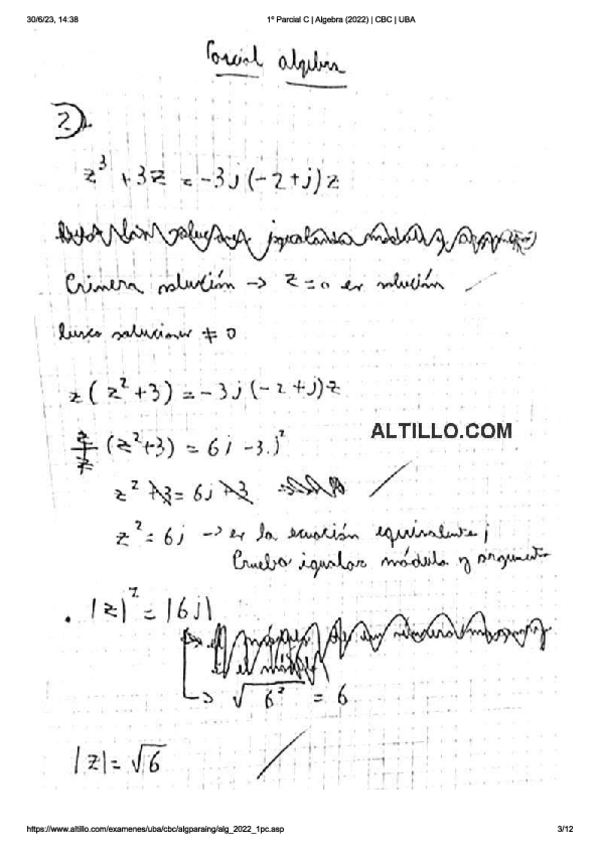 30/6/23, 14:38 1º Parcial C | Algebra (2022) | CBC | UBA
Parcial algebra
2).
z³ + 3z = -3j(-2+j)z
Primera solución → z=0 es solución
busco soluciones ≠ 0
z(z²+3) = -3j(-2+j)z
ALTILLO.COM
z/z (z²+3) = 6j - 3j²
z² + 3 = 6j + 3
z² = 6j → es la ecuación equivalente;
Pruebo igualar módulo y argumento
. |z|² = |6j|
→ √6² = 6
|z| = √6
https://www.altillo.com/examenes/uba/cbc/algparaing/alg_2022_1pc.asp 3/12